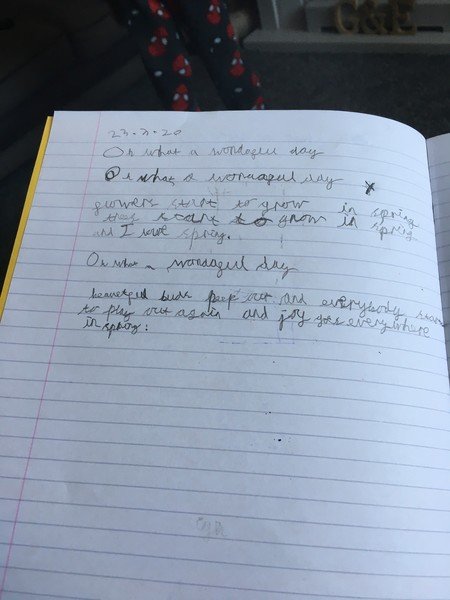 G&E
23.3.20
Oh what a wondaful day
Oh what a wondaful day
flowers start to grow in spring
they start to grow in spring
and I love spring.
Oh what a wondaful day
beautiful buds peep out and everybody starts
to play out again and joy goes everywhere
in spring.